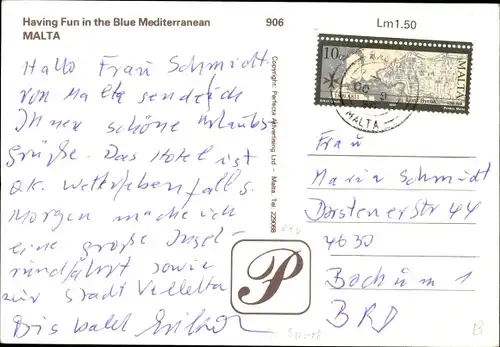 Having Fun in the Blue Mediterranean
MALTA
906
Lm1.50
Hallo Frau Schmidt.
von Malta sende ich
Ihnen schöne Urlaubs
grüße. Das Hotel ist
o.k. Wetter ebenfalls.
Morgen mache ich
eine große Insel-
rundfahrt sowie
zur Stadt Valletta
Bis bald
Copyright: Perfecta Advertising Ltd – Malta. Tel: 229068
P
10c
MALTA
MALTA
Frau
Maria Schmidt
Dorstenerstr 44
4630
Bochum 1
BRD
B